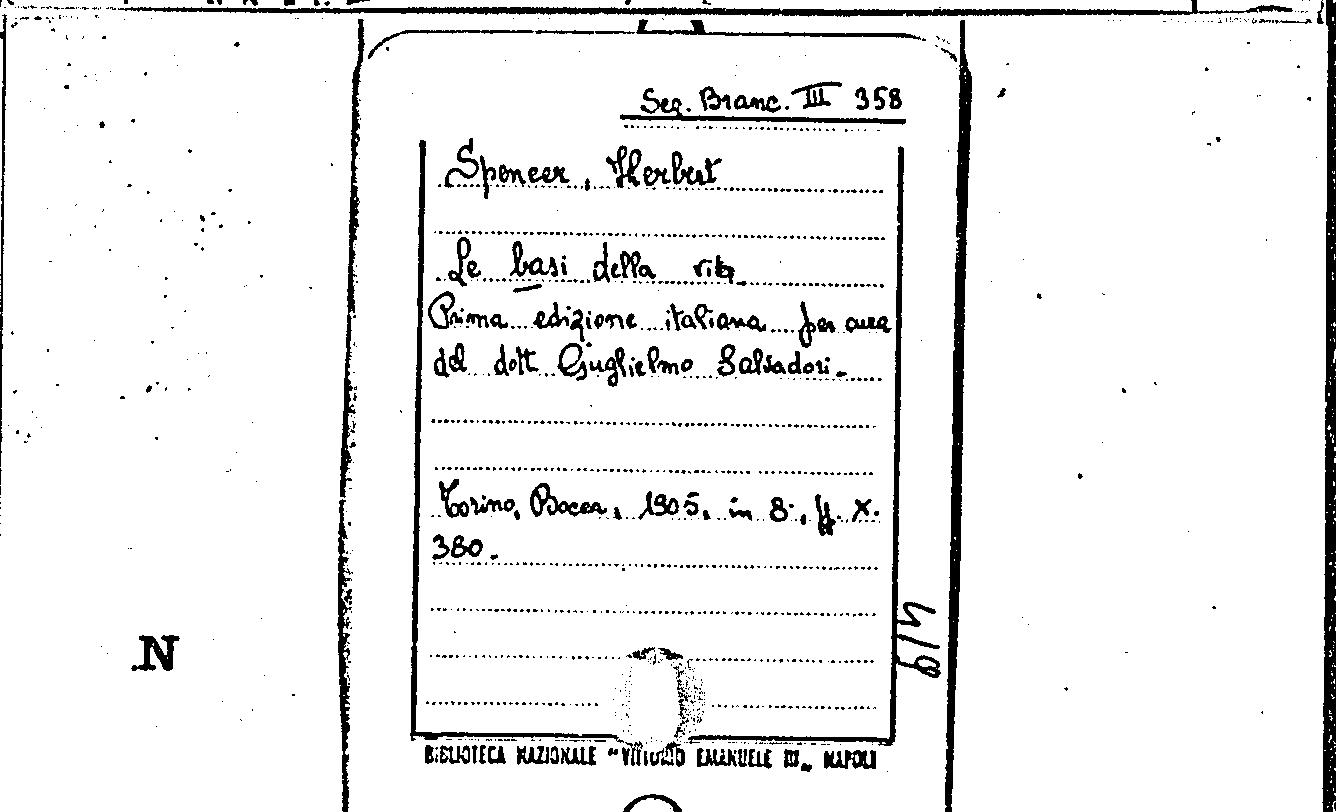 Seq. Branc. III 358
Spencer, Herbert
Le basi della vita.
Prima edizione italiana per cura
del dott Guglielmo Salvadori.
Torino, Bocca, 1905, in 8°, pp. X.
380.
419
N
BIBLIOTECA NAZIONALE "VITTORIO EMANUELE III„ NAPOLI